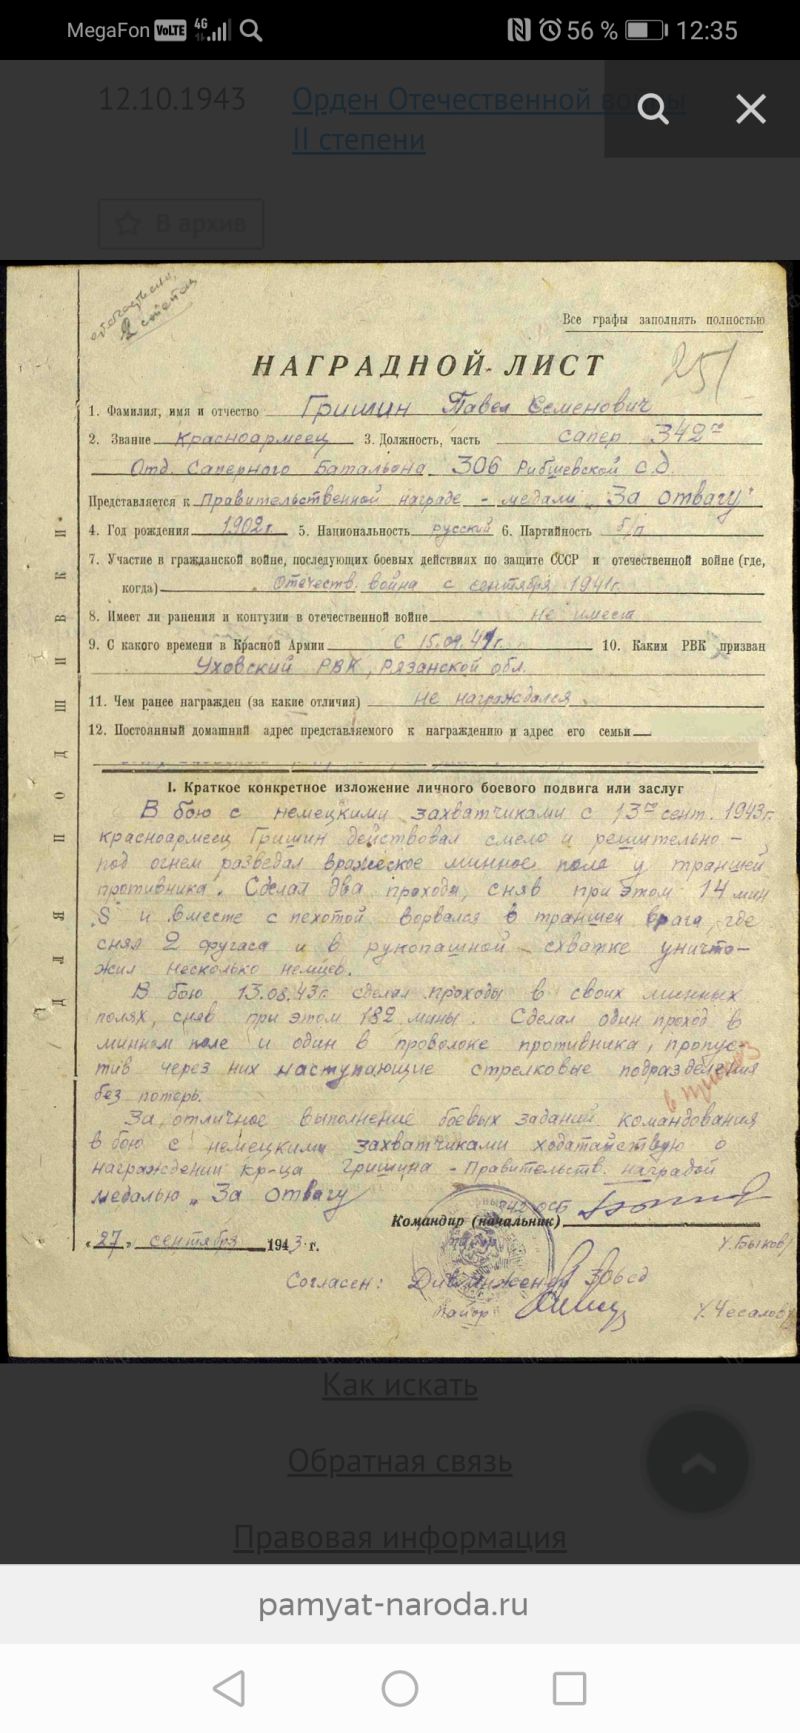 MegaFon VoLTE 4G 56 % 12:35
12.10.1943 Орден Отечественной войны
II степени
В архив
2 степени
Все графы заполнять полностью
НАГРАДНОЙ ЛИСТ
251
1. Фамилия, имя и отчество Гришин Павел Семенович
2. Звание красноармеец 3. Должность, часть сапер 342го
Отд. Саперного Батальона 306 Рибшевской с.д.
Представляется к Правительственной награде - медали „За отвагу"
4. Год рождения 1902г. 5. Национальность русский 6. Партийность б/п
7. Участие в гражданской войне, последующих боевых действиях по защите СССР и отечественной войне (где,
когда) Отечеств. война с сентября 1941г.
8. Имеет ли ранения и контузии в отечественной войне не имеет
9. С какого времени в Красной Армии с 15.09.41г. 10. Каким РВК призван
Уховский РВК, Рязанской обл.
11. Чем ранее награжден (за какие отличия) не награждался
12. Постоянный домашний адрес представляемого к награждению и адрес его семьи
I. Краткое конкретное изложение личного боевого подвига или заслуг
В бою с немецкими захватчиками с 13го сент. 1943г.
красноармеец Гришин действовал смело и решительно –
под огнем разведал вражеское минное поле у траншей
противника. Сделал два прохода, сняв при этом 14 мин
„S" и вместе с пехотой ворвался в траншеи врага, где
снял 2 фугаса и в рукопашной схватке уничто-
жил несколько немцев.
В бою 13.08.43г. сделал проходы в своих минных
полях, сняв при этом 182 мины. Сделал один проход в
минном поле и один в проволоке противника, пропус-
тив через них наступающие стрелковые подразделения
без потерь.
За отличное выполнение боевых заданий командования
в бою с немецкими захватчиками ходатайствую о
награждении кр-ца Гришина - Правительств. наградой
медалью „За отвагу
Командир (начальник) 342 ОСБ
/Быков/
„27" сентября 1943 г.
Согласен: Дивинженер 306сд
майор /Чесалов/
ДЛЯ ПОДШИВКИ
Как искать
Обратная связь
Правовая информация
pamyat-naroda.ru